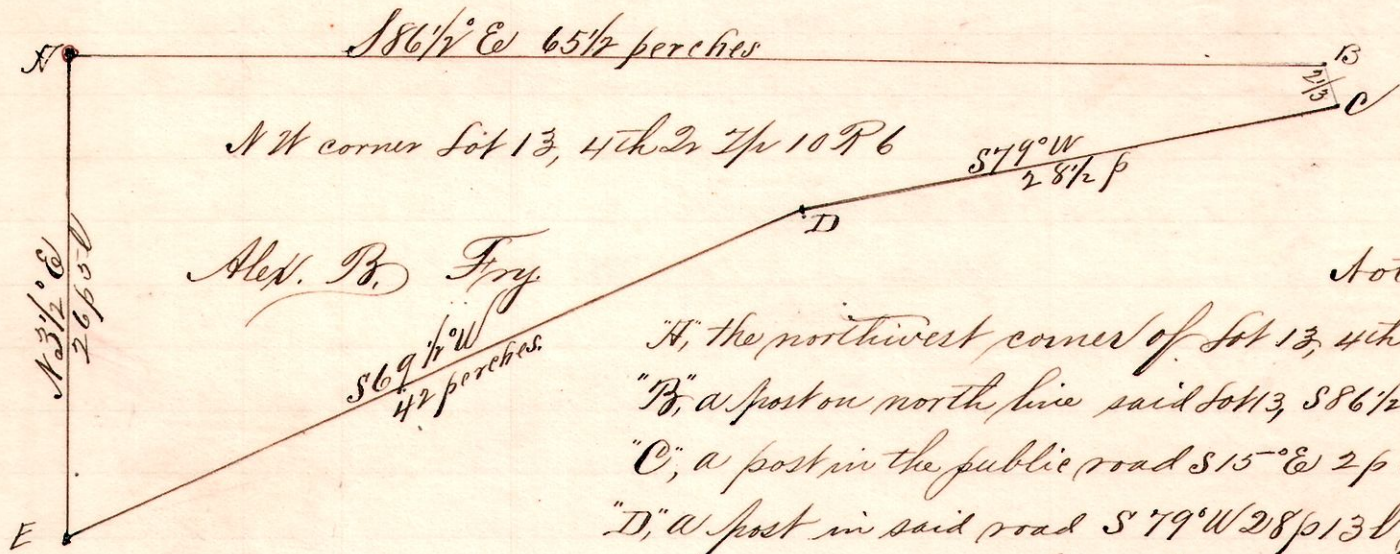 A
S86½°E 65½ perches
B
2⅓
C
NW corner Lot 13, 4th Qr Tp 10 R 6
S79°W
28½ p
D
N3½°E
26p 5l
Alex. B. Fry.
S69½°W
42 perches.
Not
"A", the northwest corner of Lot 13, 4th
"B", a post on north line said Lot 13, S86½
"C", a post in the public road S15°E 2p
"D", a post in said road S79°W 28p 13l
E